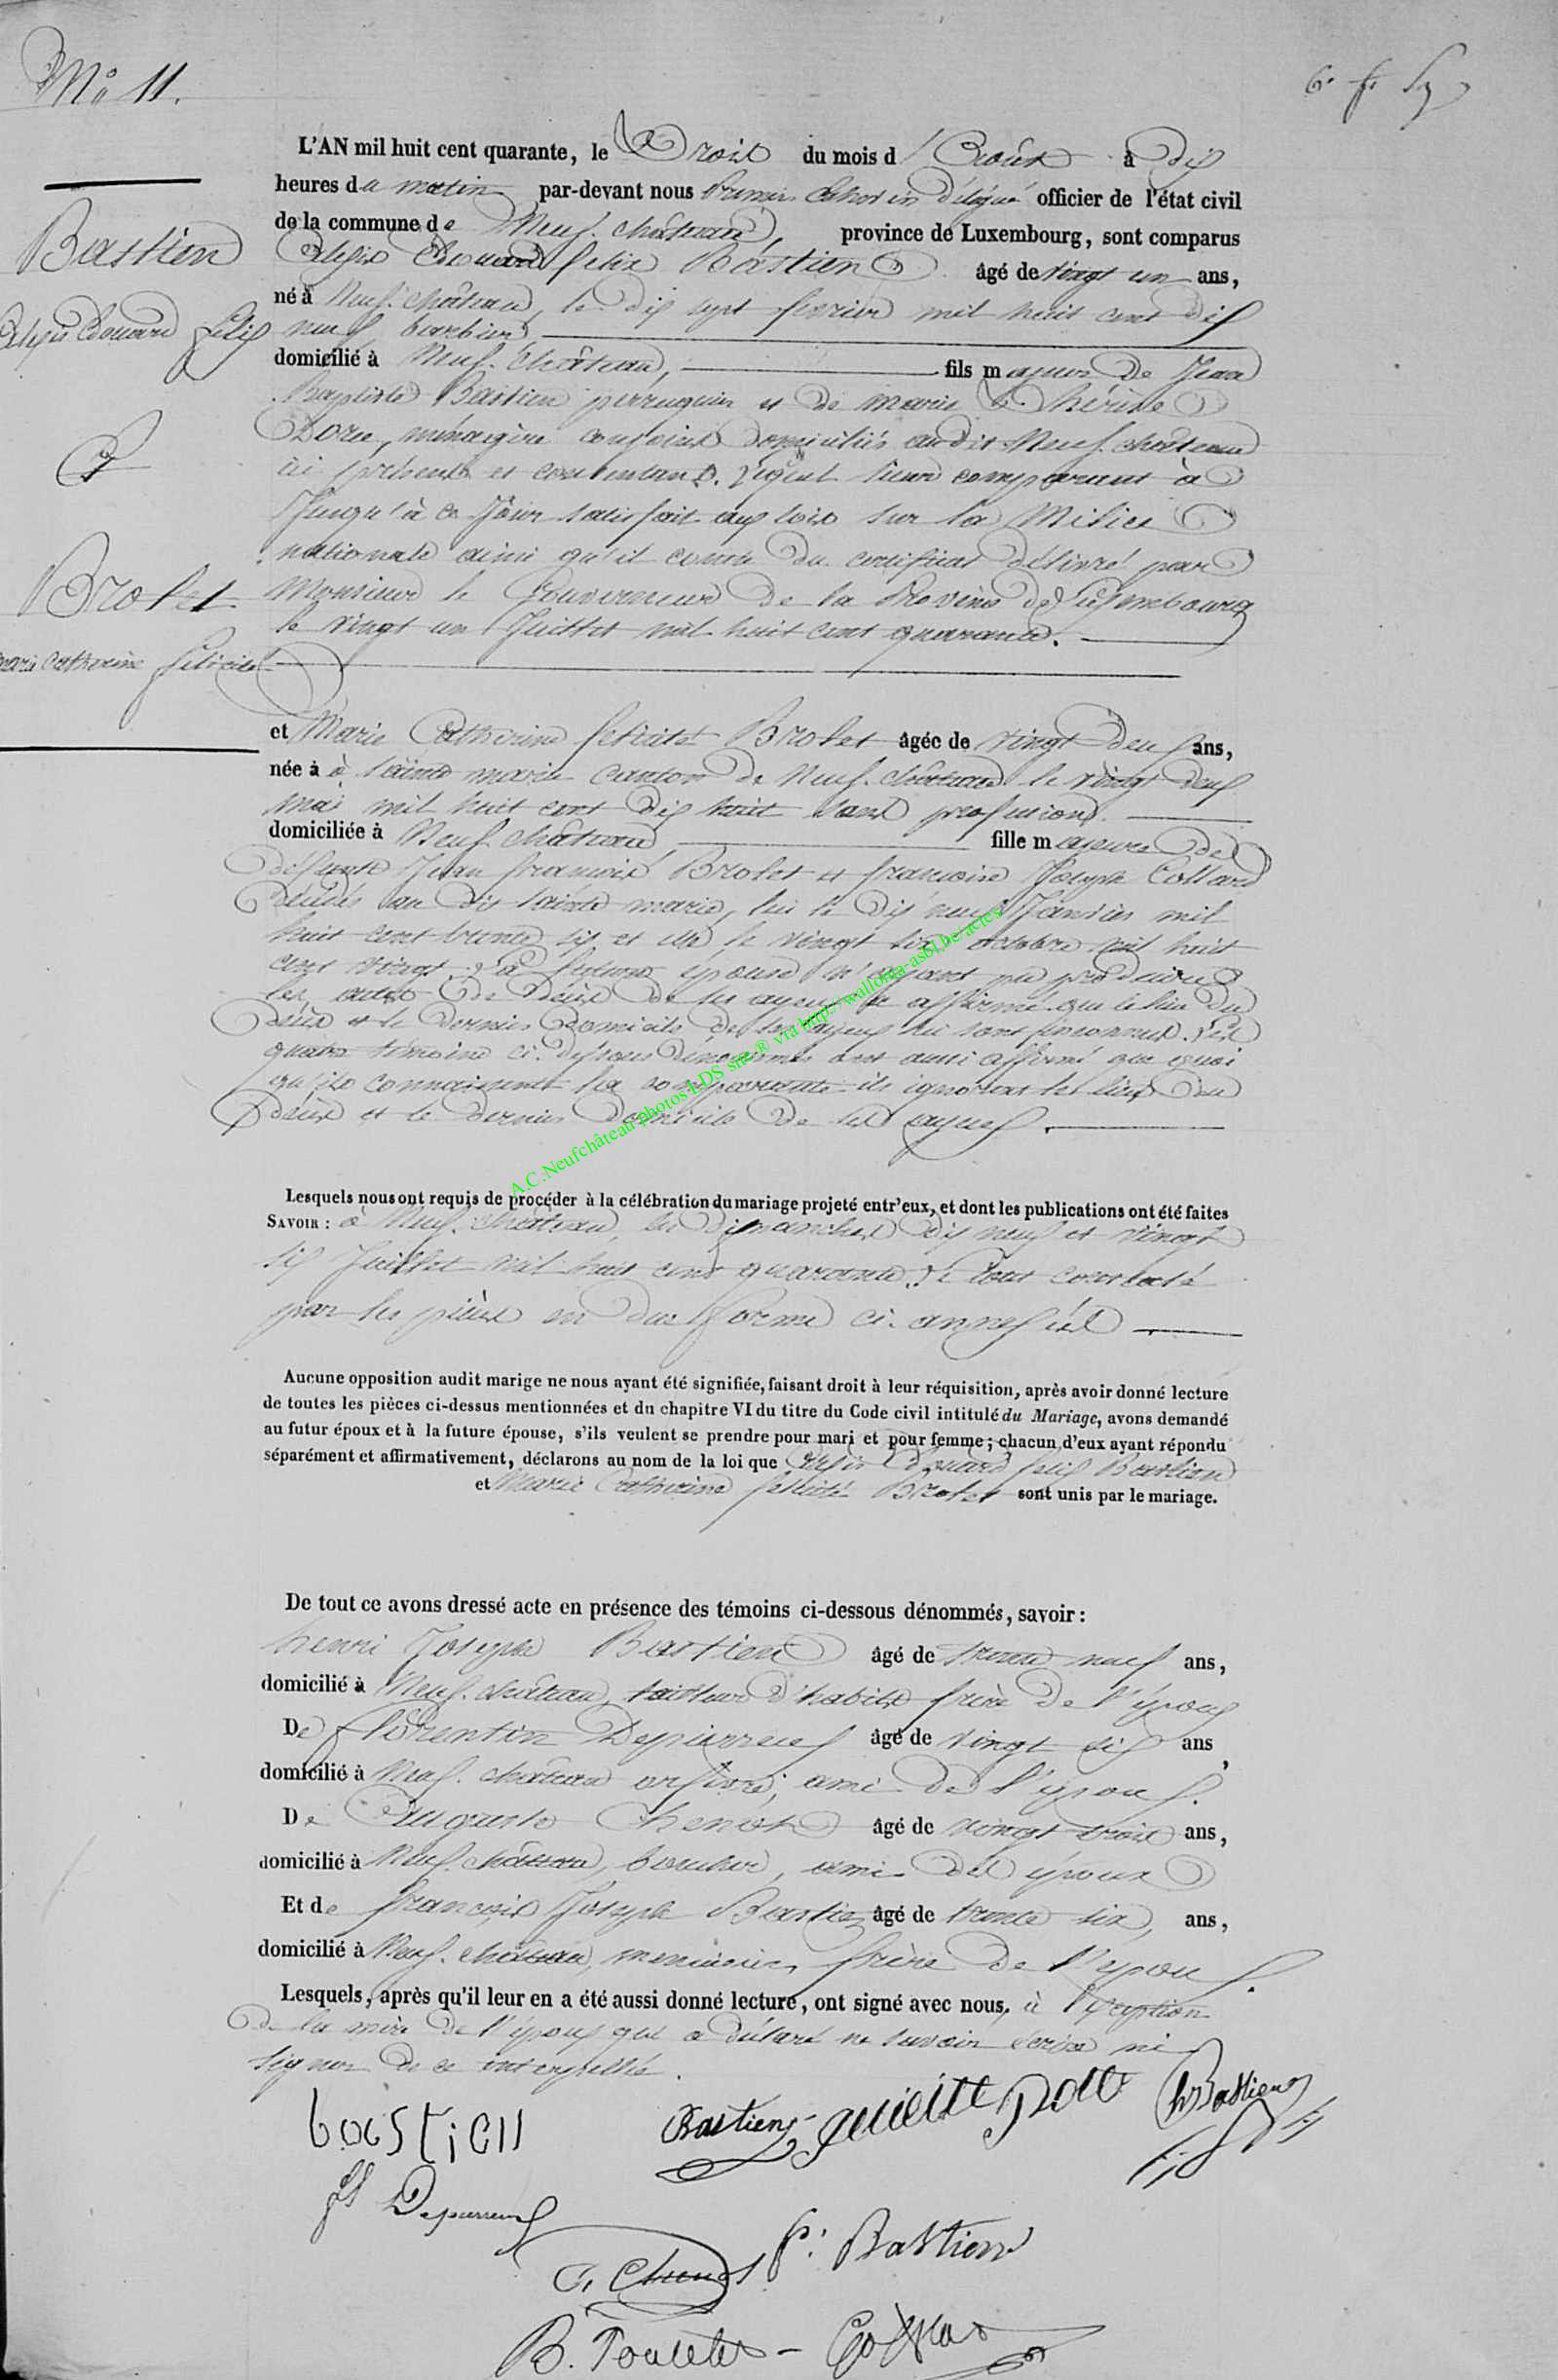 N.o 11.
L'AN mil huit cent quarante, le trois du mois d'Août à dix
heures du matin par-devant nous Premier Echevin délégué officier de l'état civil
Bastien
de la commune de Neuf-château, province de Luxembourg, sont comparus
Edouard felix Bastien âgé de vingt un ans,
Edouard felix
né à Neuf-château, le dix sept fevrier mil huit cent dix
neuf, barbier
domicilié à Neuf-château, fils majeur de Jean
Baptiste Bastien perruquier et de marie thérèse
Dorée, ménagère conjoints domiciliés audit Neuf-château
&
ici présents et contentans. Lequel sieur comparant à
Jusqu'à ce Jour satisfait aux lois sur la Milice
nationale ainsi qu'il conste du certificat délivré par
Brolet
Monsieur le Gouverneur de la Province de Luxembourg
le vingt un Juillet mil huit cent quarante.
marie catherine felicité
et Marie Catherine felicité Brolet âgée de vingt deux ans,
née à à sainte marie canton de Neuf-château le vingt deux
mai mil huit cent dix huit sans profession.
domiciliée à Neuf-château, fille majeure de
défunts Jean françois Brolet et françoise Joseph Collard
décédés au dit sainte marie, lui le dix neuf Janvier mil
huit cent trente six et elle, le vingt six octobre mil huit
cent vingt. La future épouse n'ayant pu produire
les actes de décès de ses ayeux a affirmé que le lieu du
décès et le dernier domicile de ses ayeux lui sont inconnus. Les
quatre témoins ci-dessous dénommés ont aussi affirmé que quoi
qu'ils connaissent la comparante ils ignorent le lieu du
décès et le dernier domicile de ses ayeux.
A.C.Neufchâteau photos LDS site ® via http://wallonia-asbl.be/actes
Lesquels nous ont requis de procéder à la célébration du mariage projeté entr'eux, et dont les publications ont été faites
SAVOIR : à Neuf-château, les dimanches dix neuf et vingt
six Juillet mil huit cent quarante. Le tout constaté
par les pièces en due forme ci-annexées
Aucune opposition audit marige ne nous ayant été signifiée, faisant droit à leur réquisition, après avoir donné lecture
de toutes les pièces ci-dessus mentionnées et du chapitre VI du titre du Code civil intitulé du Mariage, avons demandé
au futur époux et à la future épouse, s'ils veulent se prendre pour mari et pour femme ; chacun d'eux ayant répondu
séparément et affirmativement, déclarons au nom de la loi que Edouard felix Bastien
et Marie Catherine felicité Brolet sont unis par le mariage.
De tout ce avons dressé acte en présence des témoins ci-dessous dénommés, savoir :
henri Joseph Bastien âgé de trente neuf ans,
domicilié à Neuf-château, tailleur d'habits frère de l'époux
De florentin Depierreux âgé de vingt six ans,
domicilié à Neuf-château orfèvre, ami de l'époux.
De Auguste Chenot âgé de vingt trois ans,
domicilié à Neuf-château, boucher, ami des époux
Et de françois Joseph Bastien âgé de trente six, ans,
domicilié à Neuf-château, menuisier frère de l'époux.
Lesquels, après qu'il leur en a été aussi donné lecture, ont signé avec nous, à l'exception
de la mère de l'époux qui a déclaré ne savoir écrire ni
signer de ce interpellée.
bastien Bastien hBastien
Depierreux
A. Chenot f: Bastien